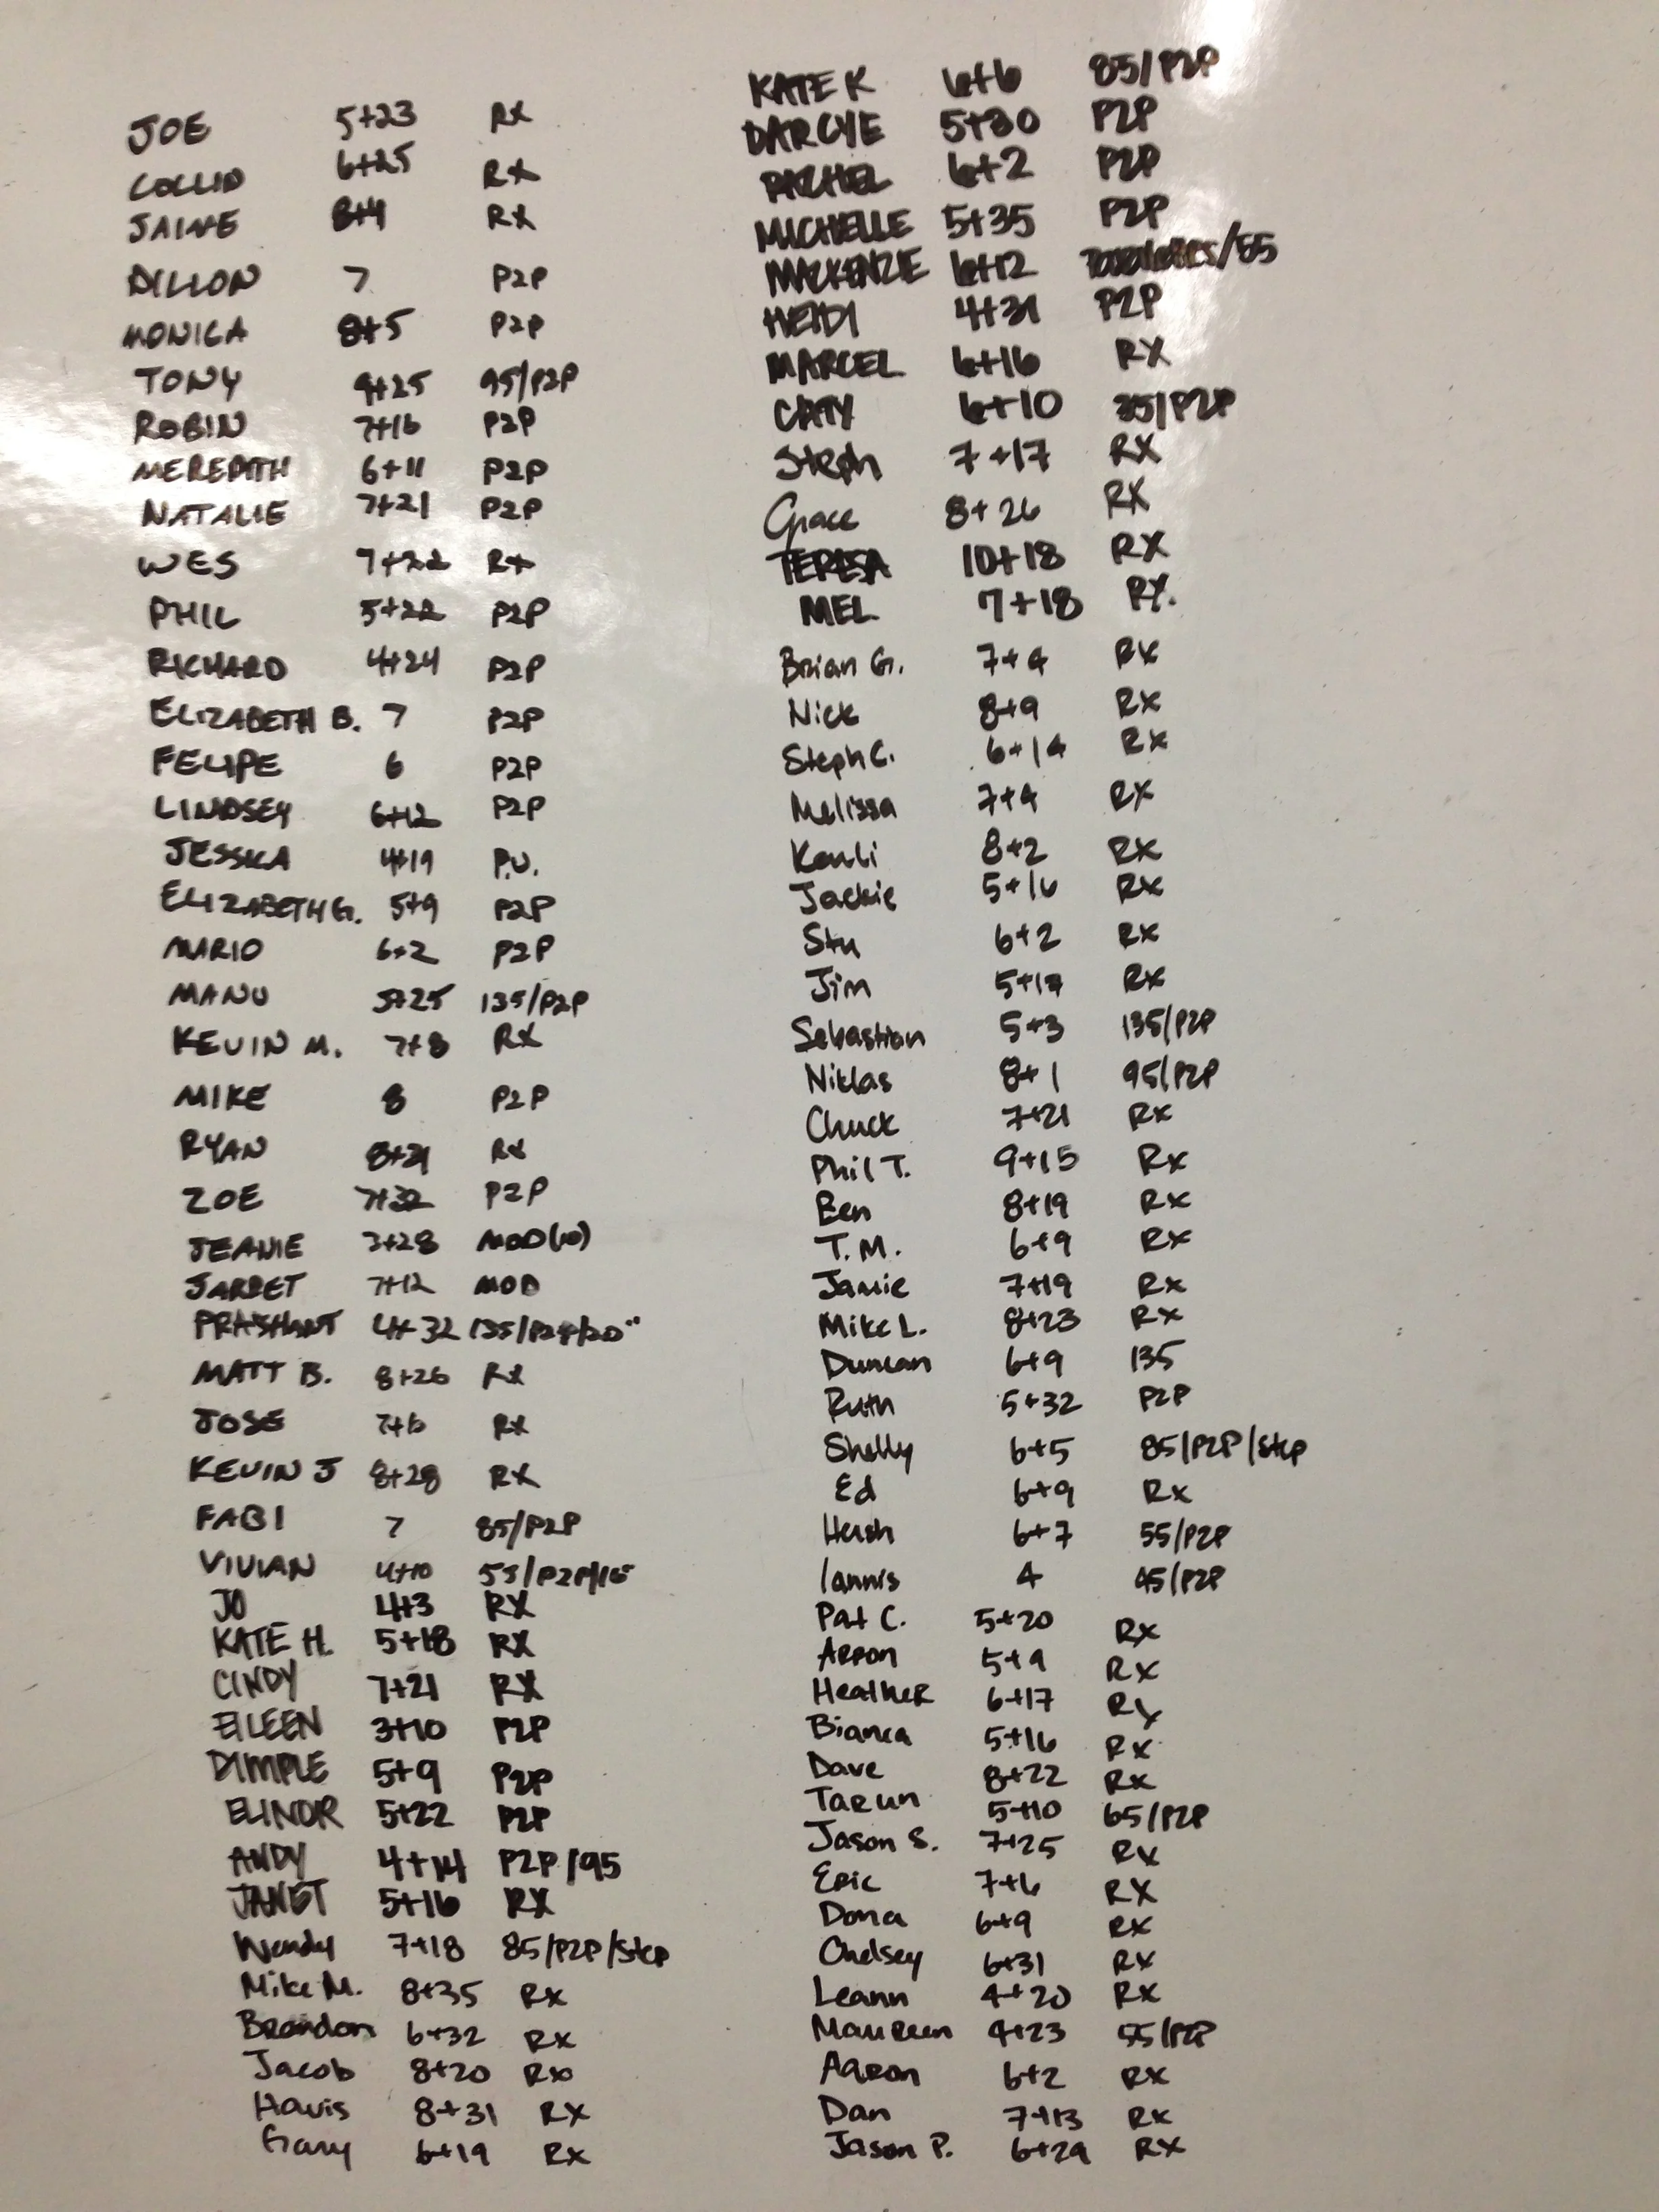 JOE 5+23 RX
COLLIN 6+25 RX
JAIME 8+4 RX
DILLON 7 P2P
MONICA 8+5 P2P
TONY 9+25 95/P2P
ROBIN 7+16 P2P
MEREDITH 6+11 P2P
NATALIE 7+21 P2P
WES 7+22 RX
PHIL 5+22 P2P
RICHARD 4+24 P2P
ELIZABETH B. 7 P2P
FELIPE 6 P2P
LINDSEY 6+12 P2P
JESSICA 4+19 P.U.
ELIZABETH G. 5+9 P2P
MARIO 6+2 P2P
MANU 5+25 135/P2P
KEVIN M. 7+8 RX
MIKE 8 P2P
RYAN 8+21 RX
ZOE 7+32 P2P
JEANIE 7+28 MOD(10)
JARRET 7+12 MOD
PRASHANT 4+32 135/P2P/20"
MATT B. 8+26 RX
JOSE 7+6 RX
KEVIN J 8+28 RX
FABI 7 85/P2P
VIVIAN 4+10 55/P2P/15"
JO 4+3 RX
KATE H. 5+18 RX
CINDY 7+21 RX
EILEEN 3+10 P2P
DIMPLE 5+9 P2P
ELINOR 5+22 P2P
ANDY 4+14 P2P/95
JANET 5+16 RX
Wendy 7+18 85/P2P/Step
Mike M. 8+35 Rx
Brandon 6+32 Rx
Jacob 8+20 Rx
Havis 8+31 RX
Gary 6+19 Rx
KATE K 6+6 85/P2P
DARCYE 5+30 P2P
RACHEL 6+2 P2P
MICHELLE 5+35 P2P
MACKENZIE 6+12 /55
HEIDI 4+31 P2P
MARCEL 6+16 RX
CATY 6+10 35/P2P
Steph 7+17 RX
Grace 8+26 RX
TERESA 10+18 RX
MEL 7+18 RX.
Brian G. 7+4 RX
Nick 8+9 RX
Steph C. 6+14 Rx
Melissa 7+4 RX
8+2 RX
Jackie 5+16 RX
Stu 6+2 Rx
Jim 5+17 Rx
Sebastian 5+3 135/P2P
Niklas 8+1 95/P2P
Chuck 7+21 Rx
Phil T. 9+15 Rx
Ben 8+19 Rx
T.M. 6+9 Rx
Jamie 7+19 Rx
Mike L. 8+23 Rx
Duncan 6+9 135
Ruth 5+32 P2P
Shelly 6+5 85/P2P/Step
Ed 6+9 Rx
Hersh 6+7 55/P2P
Iannis 4 45/P2P
Pat C. 5+20 Rx
Arron 5+9 Rx
Heather 6+17 Rx
Bianca 5+16 Rx
Dave 8+22 Rx
Tarun 5+10 65/P2P
Jason S. 7+25 Rx
Eric 7+6 RX
Dona 6+9 RX
Chelsey 6+31 RX
Leann 4+20 RX
Maureen 4+23 55/P2P
Aaron 6+2 RX
Dan 7+13 RX
Jason P. 6+29 RX